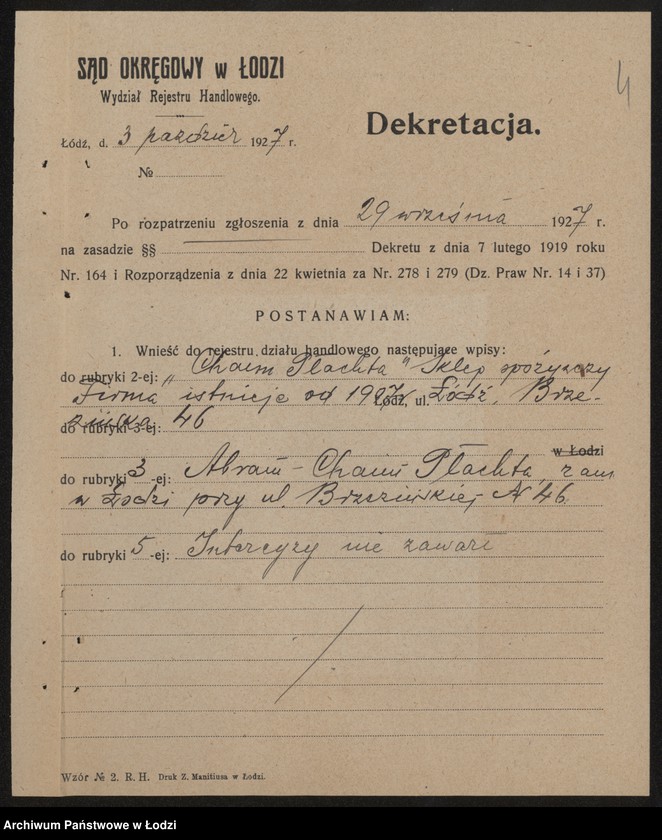 SĄD OKRĘGOWY w ŁODZI
Wydział Rejestru Handlowego.
4
Dekretacja.
Łódź, d. 3 październ 1927 r.
№
Po rozpatrzeniu zgłoszenia z dnia 29 września 1927 r.
na zasadzie §§ Dekretu z dnia 7 lutego 1919 roku
Nr. 164 i Rozporządzenia z dnia 22 kwietnia za Nr. 278 i 279 (Dz. Praw Nr. 14 i 37)
POSTANAWIAM:
1. Wnieść do rejestru działu handlowego następujące wpisy:
do rubryki 2-ej: „Chaim Płachta" Sklep spożywczy
Firma istnieje od 1927 Łódź, ul. Łódź, Brze-
zińska 46
do rubryki 3-ej:
w Łodzi
do rubryki 3-ej: Abram-Chaim Płachta, zam
w Łodzi przy ul. Brzezińskiej N 46
do rubryki 5-ej: Intercyzy nie zawarł
Wzór № 2. R. H. Druk Z. Manitiusa w Łodzi.
Archiwum Państwowe w Łodzi